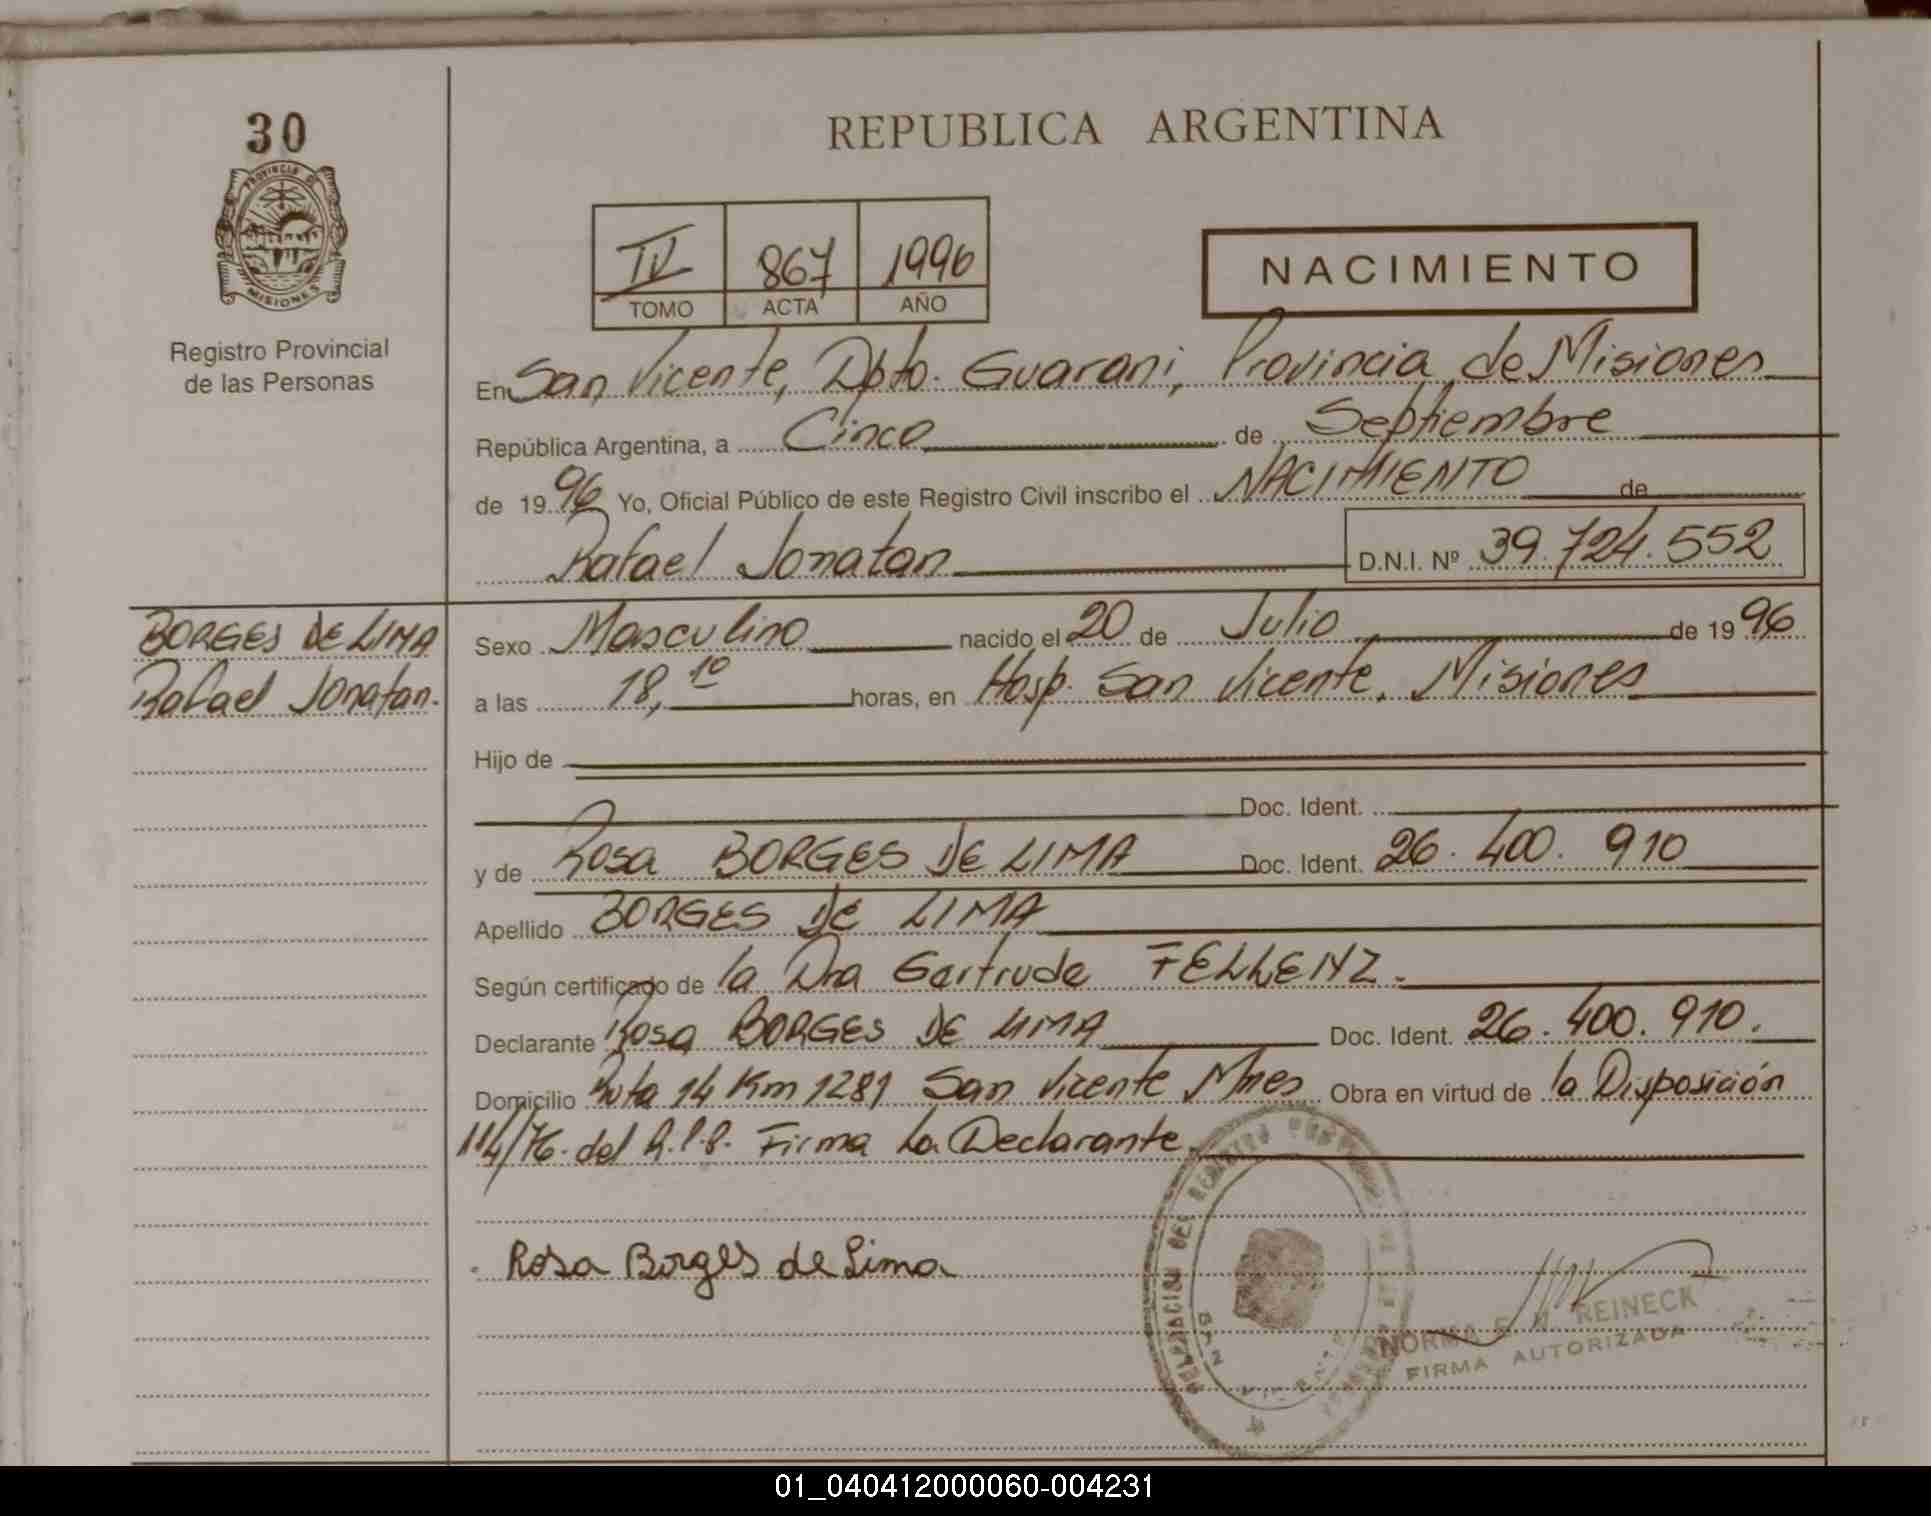 30
PROVINCIA DE
MISIONES
Registro Provincial
de las Personas
REPUBLICA ARGENTINA
IV 867 1996
TOMO ACTA AÑO
NACIMIENTO
En San Vicente, Dpto. Guarani, Provincia de Misiones
República Argentina, a Cinco de Septiembre
de 1996 Yo, Oficial Público de este Registro Civil inscribo el NACIMIENTO de
Rafael Jonatan D.N.I. Nº 39.724.552
BORGES DE LIMA
Rafael Jonatan.
Sexo Masculino nacido el 20 de Julio de 1996
a las 18,10 horas, en Hosp. San Vicente, Misiones
Hijo de
Doc. Ident.
y de Rosa BORGES DE LIMA Doc. Ident. 26.400.910
Apellido BORGES DE LIMA
Según certificado de la Dra Gertrude FELLENZ.
Declarante Rosa BORGES DE LIMA Doc. Ident. 26.400.910.
Domicilio Ruta 14 Km 1281 San Vicente Mnes Obra en virtud de la Disposición
114/76. del R.P.P. Firma La Declarante
Rosa Borges de Lima
NORMA E. H. REINECK
FIRMA AUTORIZADA
01_040412000060-004231